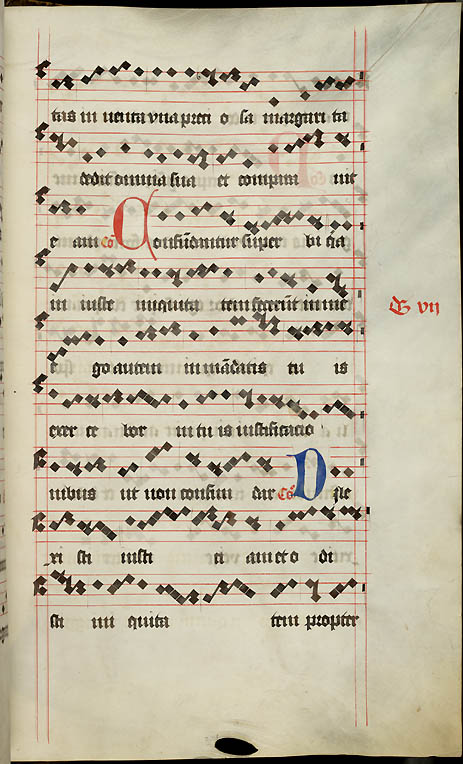 tas in uenta vna preci o sa margari ta
dedit omnia sua et compara uit
e am Co Confundantur super bi q̄a
in iuste iniquita tem fecerūt in me
e go autem in mādatis tu is
exer ce bor in tu is iustificatio
nibus ut non confun dar Co Dile
xi sti iusti ci am et o di
sti ini quita tem propter
G vij